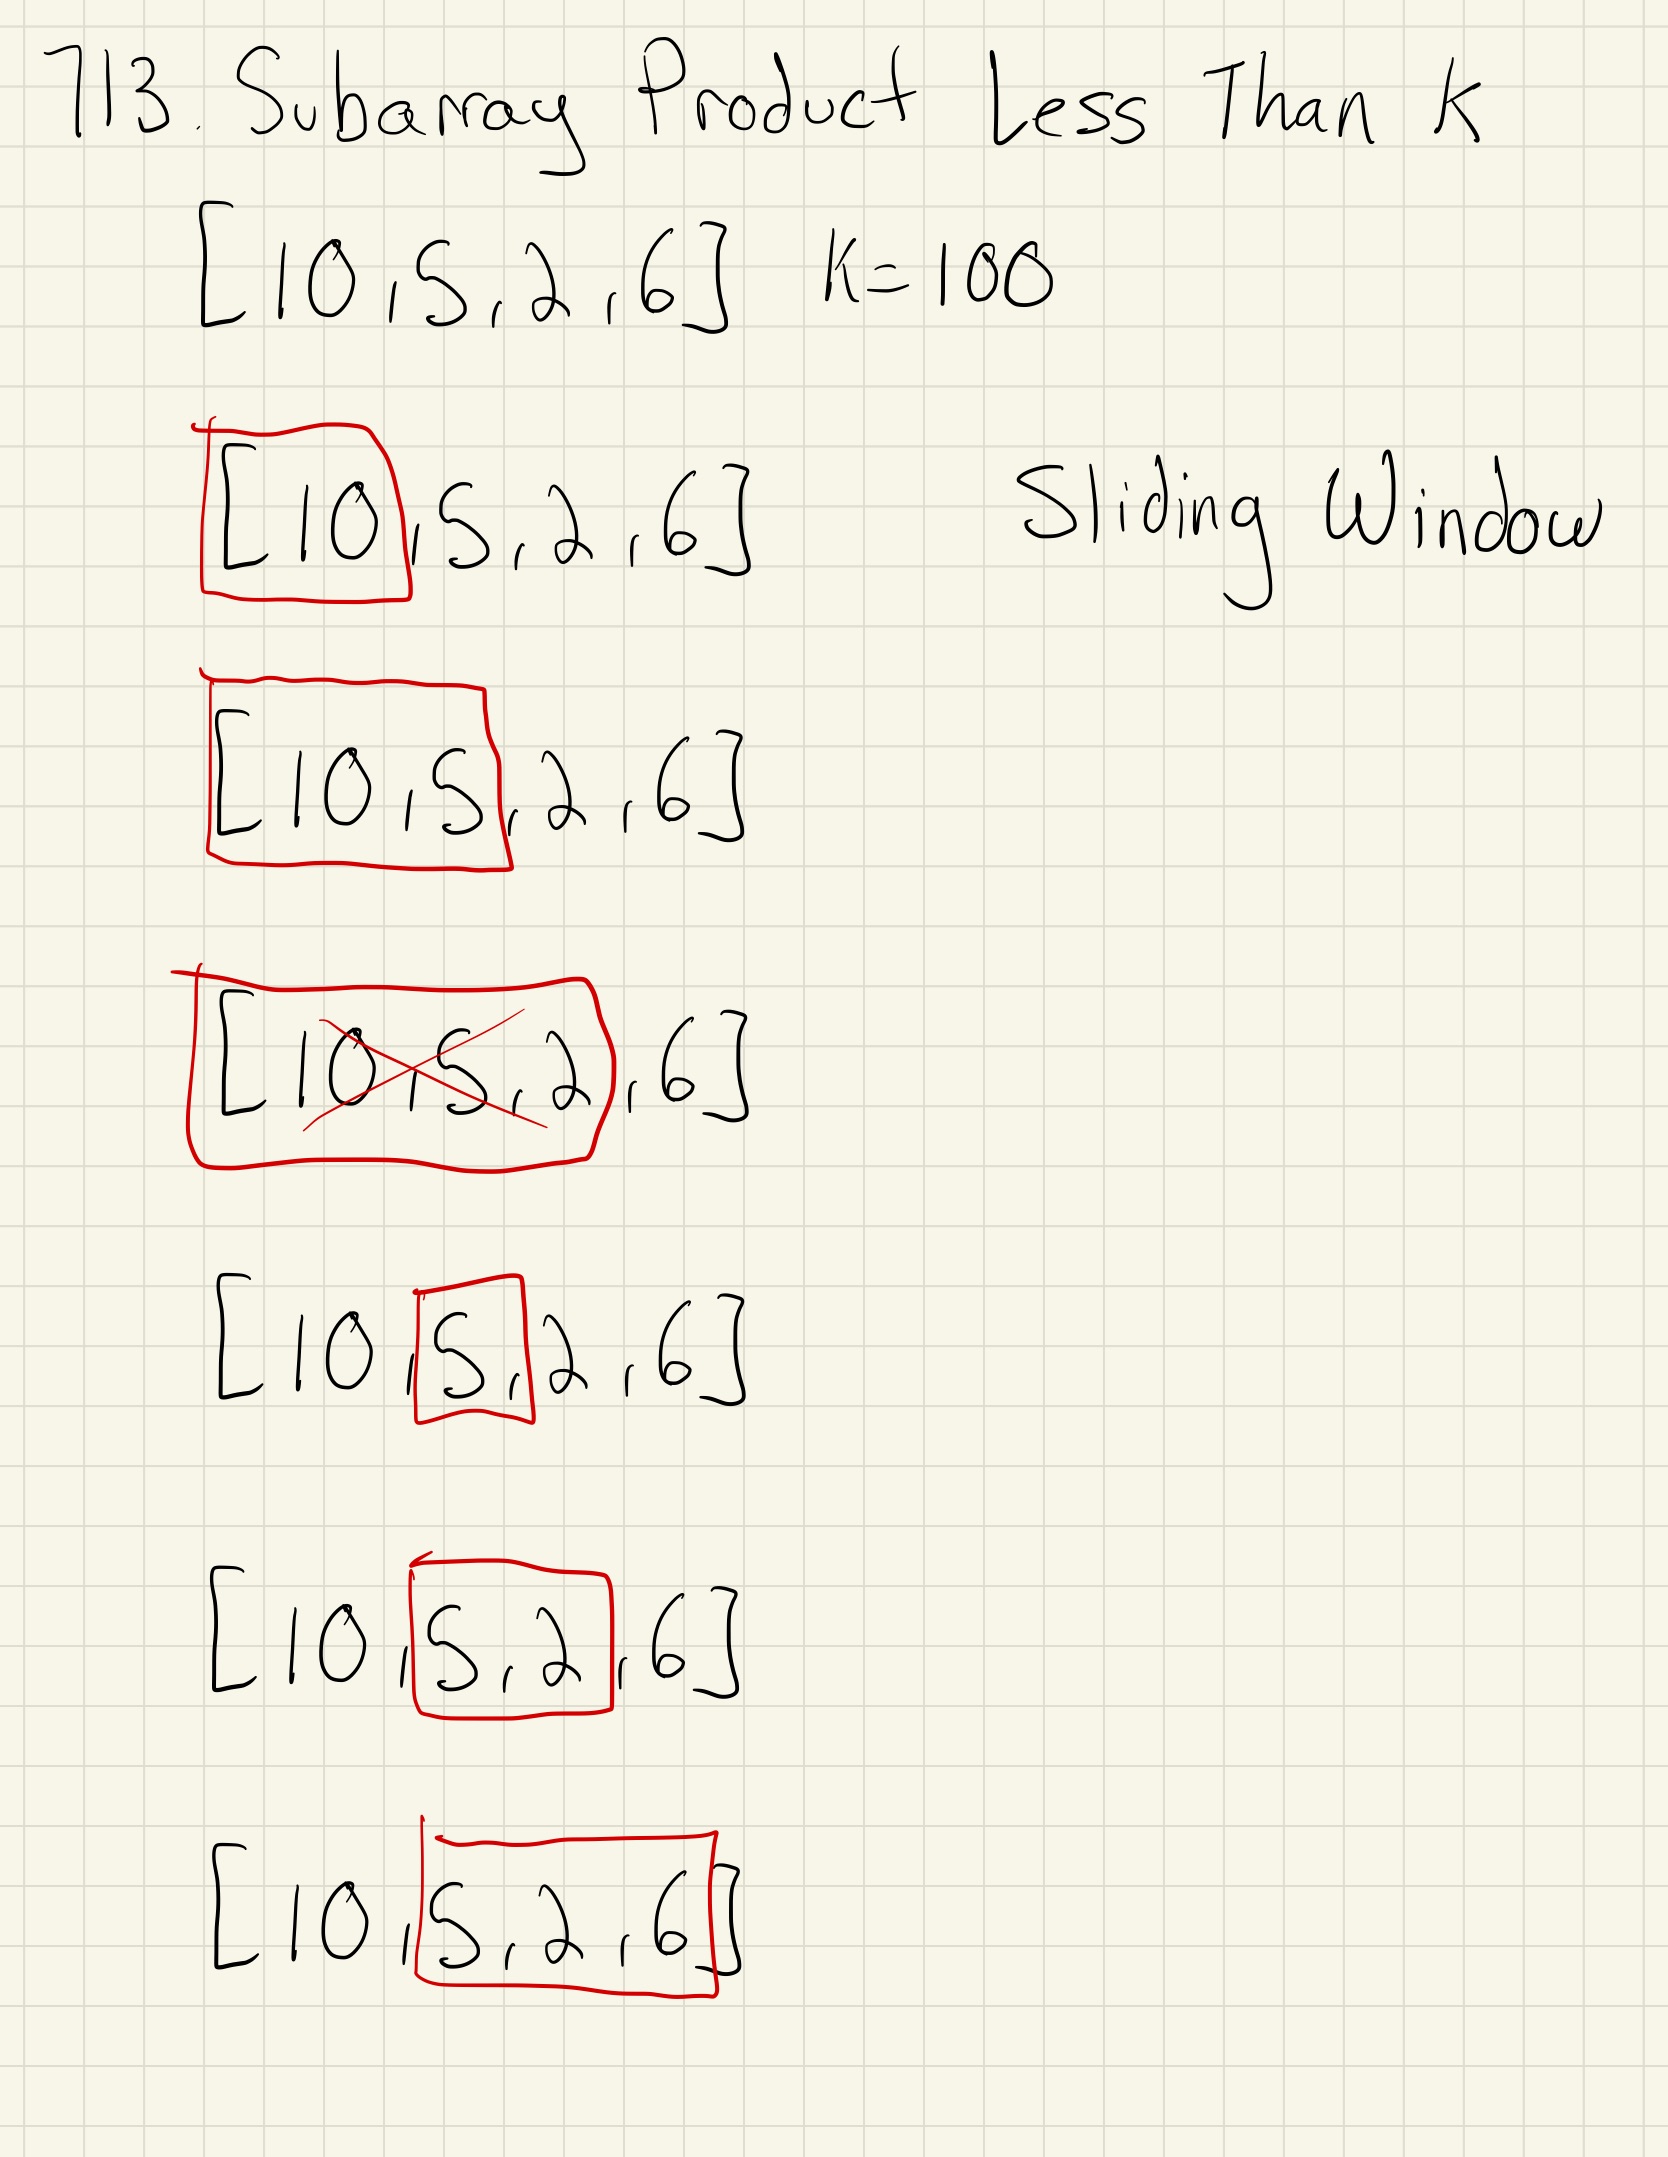 713. Subarray Product Less Than K
[10,5,2,6] K=100
[10,5,2,6] Sliding Window
[10,5,2,6]
[10,5,2,6]
[10,5,2,6]
[10,5,2,6]
[10,5,2,6]